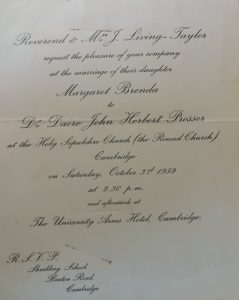 Reverend & Mrs J. Living-Taylor
request the pleasure of your company
at the marriage of their daughter
Margaret Brenda
to
Dr Dacre John Herbert Prossor
at the Holy Sepulchre Church (the Round Church)
Cambridge
on Saturday, October 3rd 1959
at 2.30 p.m.
and afterwards at
The University Arms Hotel, Cambridge.
R.S.V.P.
Shrubbery School,
Barton Road,
Cambridge.